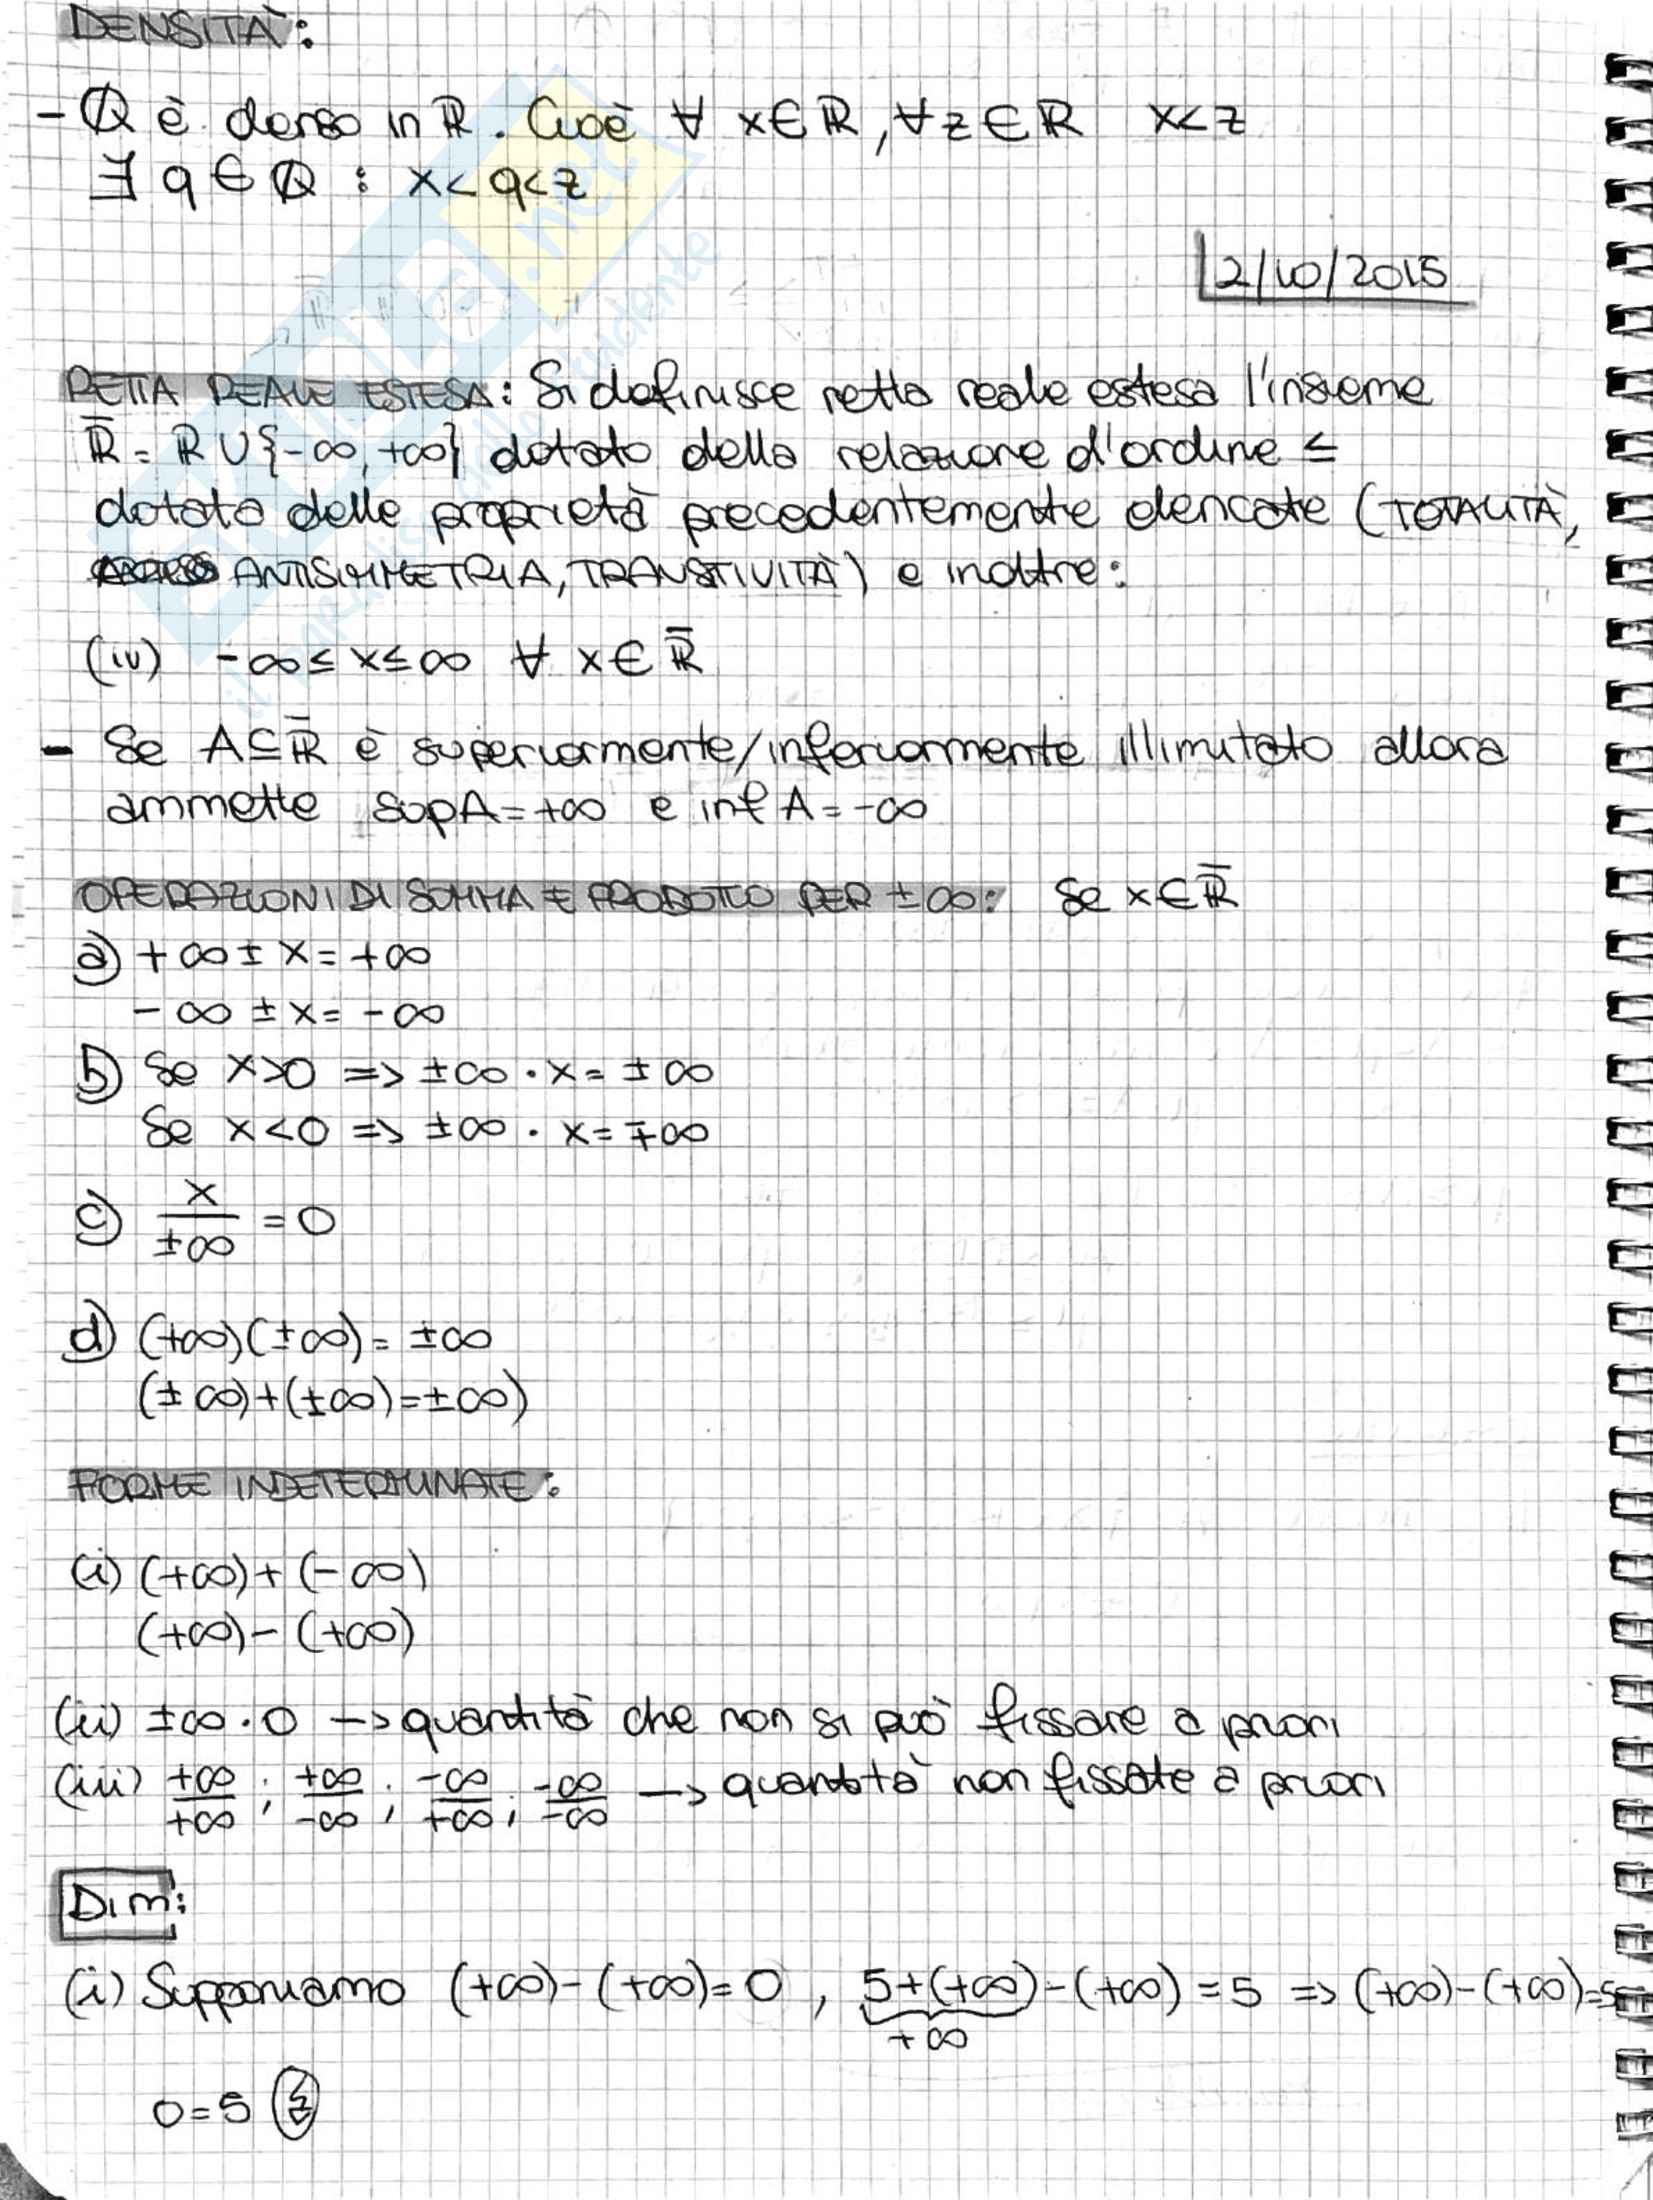 DENSITÀ:
- Q è denso in ℝ. Cioè ∀ x∈ℝ, ∀z∈ℝ x<z
∃ q∈Q : x<q<z
2/10/2015
RETTA REALE ESTESA: Si definisce retta reale estesa l'insieme
ℝ̅ = ℝ∪{-∞, +∞} dotato della relazione d'ordine ≤
dotata delle proprietà precedentemente elencate (TOTALITÀ,
ANTISIMMETRIA, TRANSITIVITÀ) e inoltre:
(iv) -∞ ≤ x ≤ ∞ ∀ x∈ℝ̅
- Se A⊆ℝ̅ è superiormente/inferiormente illimitato allora
ammette sup A=+∞ e inf A=-∞
OPERAZIONI DI SOMMA E PRODOTTO PER ±∞: Se x∈ℝ̅
a) +∞ ± x = +∞
-∞ ± x = -∞
b) Se x>0 => ±∞ · x = ±∞
Se x<0 => ±∞ · x = ∓∞
c) x/±∞ = 0
d) (+∞)(±∞) = ±∞
(±∞)+(±∞)=±∞)
FORME INDETERMINATE:
(i) (+∞)+(-∞)
(+∞)-(+∞)
(ii) ±∞·0 -> quantità che non si può fissare a priori
(iii) +∞/+∞ ; +∞/-∞ ; -∞/+∞ ; -∞/-∞ -> quantità non fissate a priori
Dim:
(i) Supponiamo (+∞)-(+∞)=0 , 5+(+∞)-(+∞) = 5 => (+∞)-(+∞)=5
+∞
0=5
SKUOLA.net
il paradiso dello studente